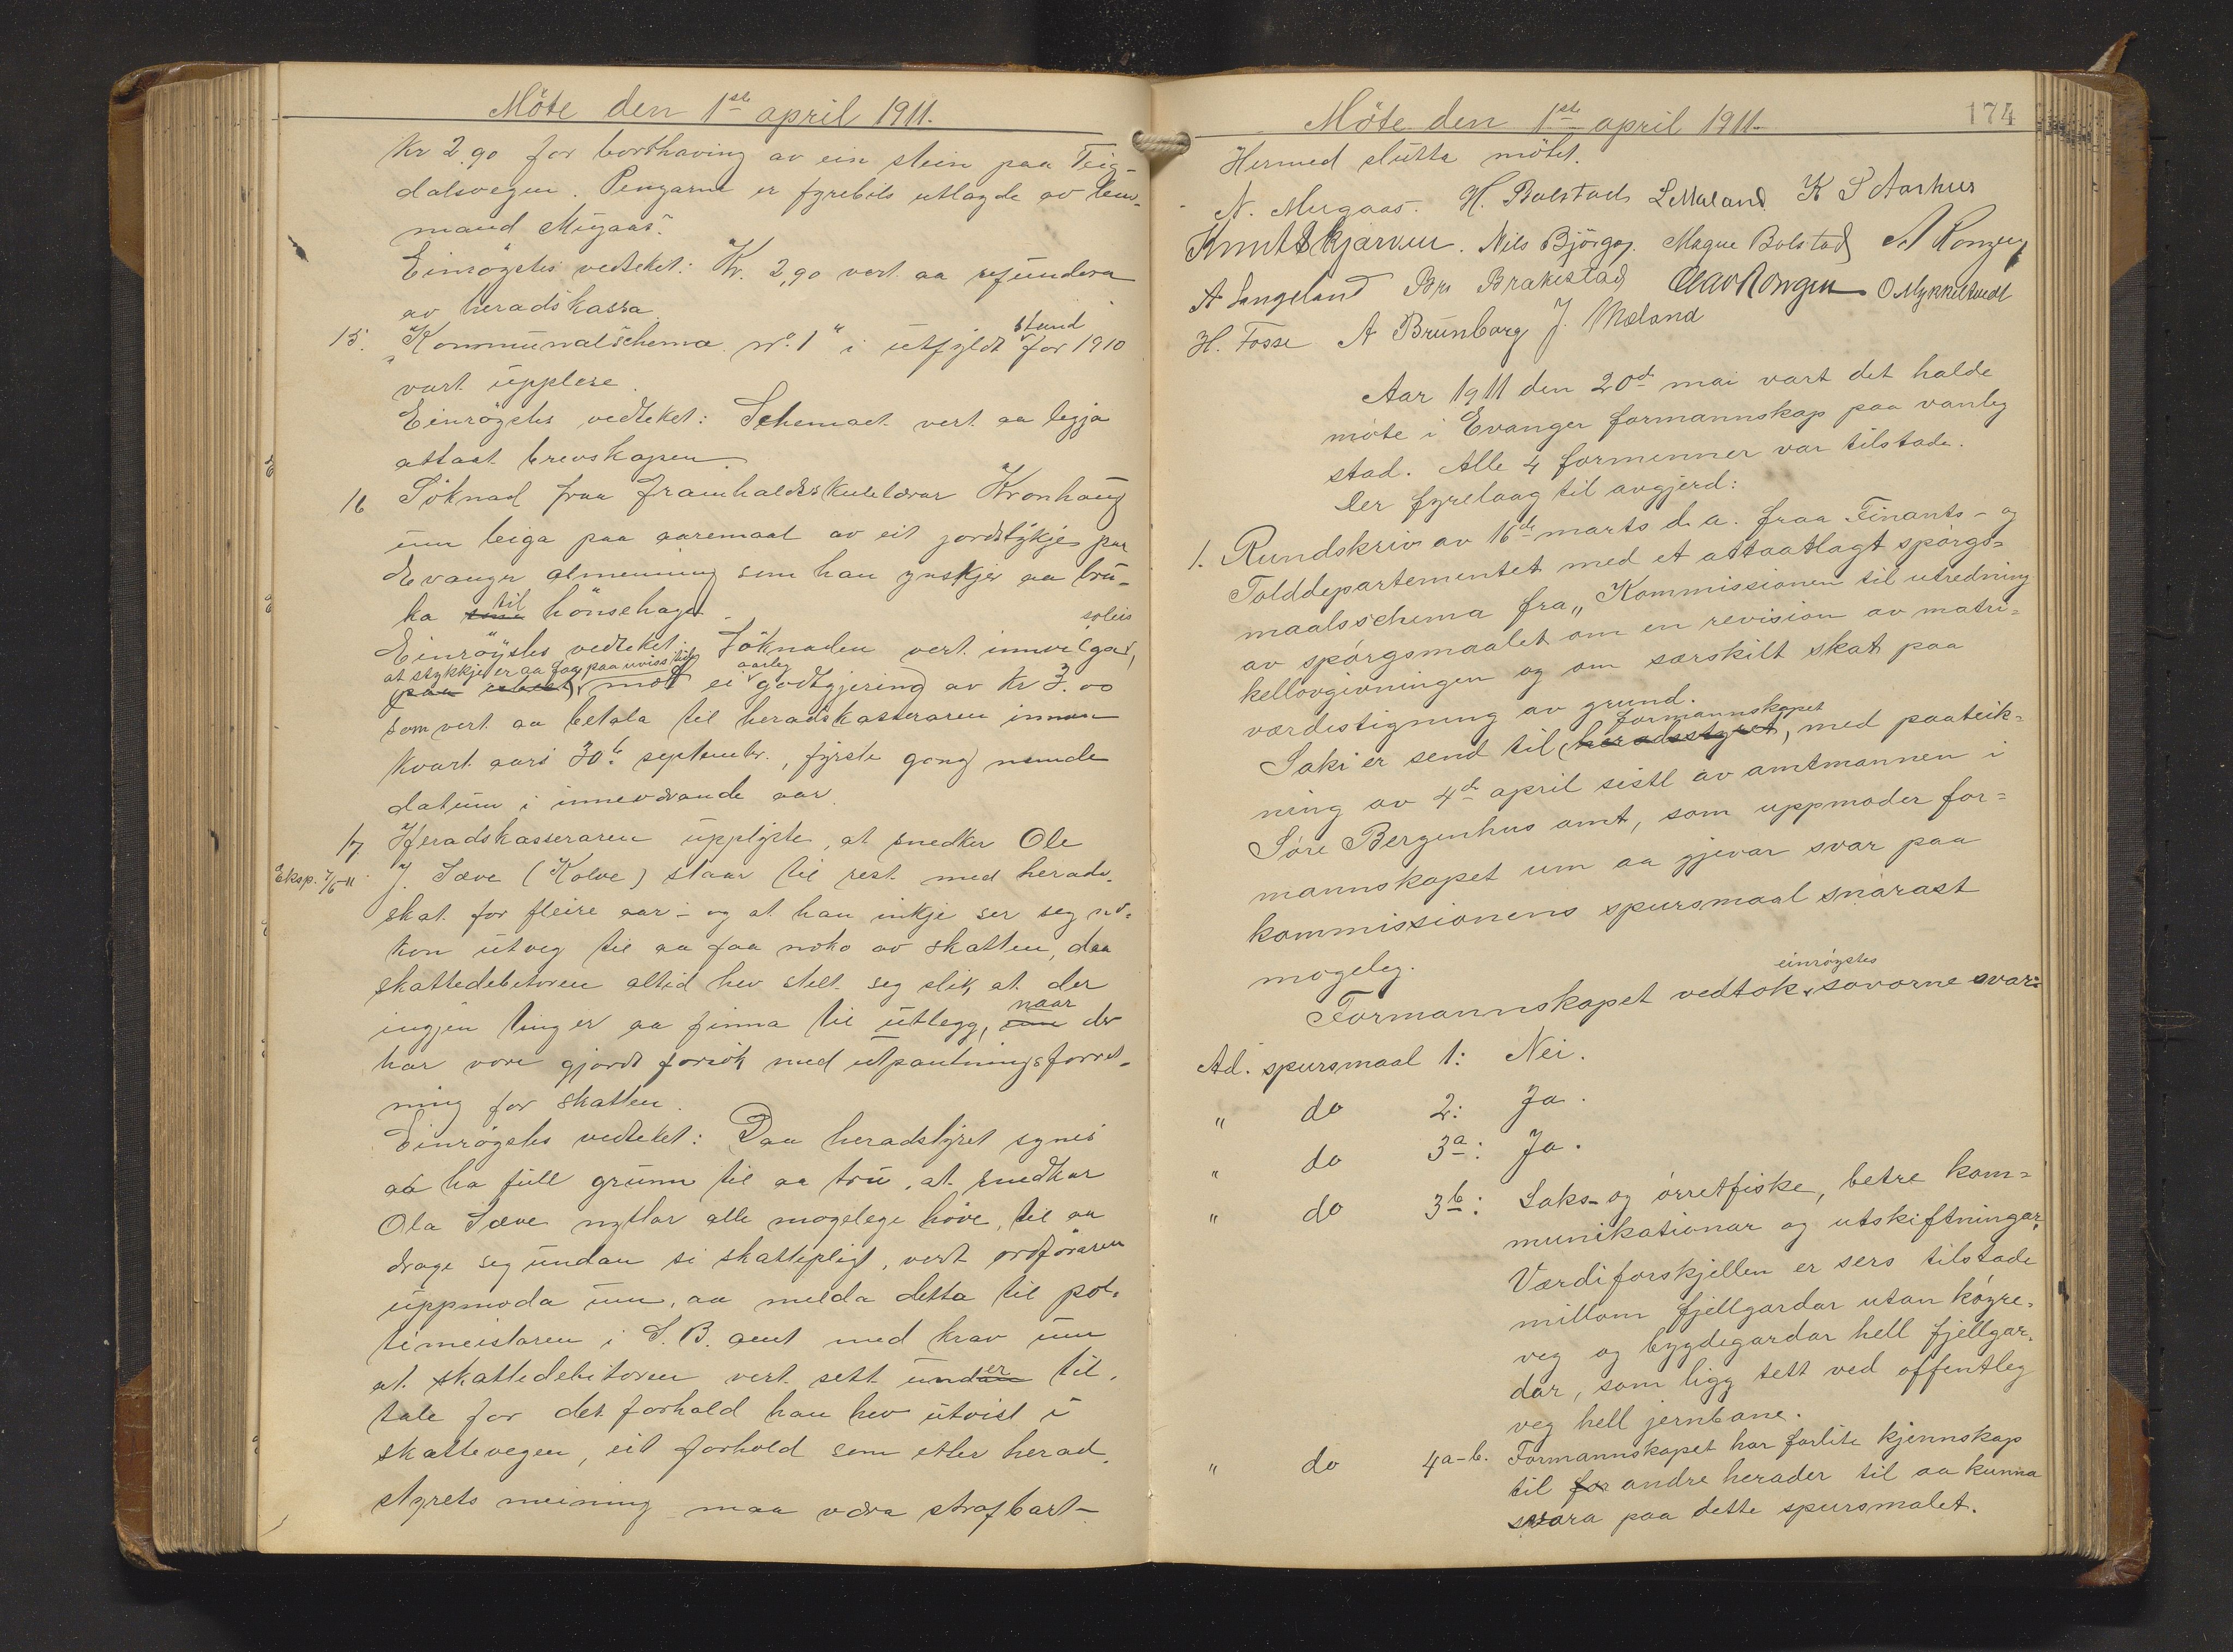 Möte den 1ste april 1911.
Kr 2.90 for borthaving av ein stein paa Teig-
dalsvegen. Pengarne er fyrebils utlagde av lens-
mand Mugaas.
Einröystes vedteket: Kr. 2,90 vert aa refundera
av heradskassa.
15. "Kommunalschema No. 1" i utfyldt stand for 1910
vart upplese.
Einröystes vedteket: Schemaet vert aa leggja
attaat brevskapen.
16 Söknad fraa framhaldsskulelærar Kronhaug
um leiga paa aaremaal av eit jordstykje paa
Evanger almenning som han ynskjer aa bru-
ka som til hönsehage.
Einröystes vedteket: Söknaden vert innvilgad, soleis
at stykkje er aa faa paa uviss tid
mot ei aarleg godtgjering av Kr 3.00
som vert aa betala til heradskasseraren innan
kvart aars 30te september, fyrste gong nemde
datum i inneverande aar.
17 Heradskasseraren upplyste, at snedker Ole
Eksp. 7/6-11 J. Sæve (Kolve) staar til rest med herads-
skat for fleire aar - og at han inkje ser seg no-
kon utveg til aa faa noko av skatten, daa
skattedebitoren altid hev stelt seg slik, at der
ingjen ting er aa finna til utlegg, um naar der
har vore gjordt forsök med utpantningsforret-
ning for skatten.
Einröystes vedteket: Daa heradstyret synes
aa ha full grunn til aa tru, at snedkar
Ola Sæve nyttar alle mogelege höve, til aa
drage seg undan si skattepligt, vert ordföraren
uppmoda um, aa melda detta til pol-
timeistaren i S. B. amt med krav um
at skattedebitoren vert sett undan er til-
tale for det forhold han hev utvist i
skattevegen, eit forhold som etter herad-
styrets meining maa vera strafbart-
Möte den 1ste april 1911.
174
Hermed slutta mötet.
N. Mugaas. H. Bolstad L Mæland K S Aarhus
Knut Skjerven. Nils Björgo. Magne Bolstad A Rongen
A Langeland Br. Brakestad Olav Rongen O Mykkeltvedt
H. Fosse A Brunborg J. Mæland
Aar 1911 den 20de mai vart det halde
möte i Evanger formannskap paa vanleg
stad. Alle 4 formenner var tilstade.
Der fyrelaag til avgjerd:
1. Rundskriv av 16de marts d. a. fraa Finants- og
Tolddepartementet med et attaatlagt spörgs-
maalsschema fra "Kommissionen til utredning
av spörgsmaalet om en revision av matri-
kellovgivningen og om særskilt skat paa
værdistigning av grund.
Saki er send til heradsstyret formannskapet, med paateik-
ning av 4de april sistl av amtmannen i
Söre Bergenhus amt, som uppmoder for-
mannskapet um aa gjevar svar paa
kommissionens spursmaal snarast
mogeleg.
Formannskapet vedtok einröystes sovorne svar:
Ad. spursmaal 1: Nei.
" do 2: Ja.
" do 3a: Ja.
" do 3b: Laks- og örretfiske, betre kom-
munikationar og utskiftningar.
Værdiforskjellen er sers tilstade
millom fjellgardar utan köyre-
veg og bygdegardar hell fjellgar-
dar, som ligg tett ved offentleg
veg hell jernbane.
" do 4a-b. Formannskapet har forlite kjennskap
til for andre herader til aa kunna
svara paa dette spursmalet.